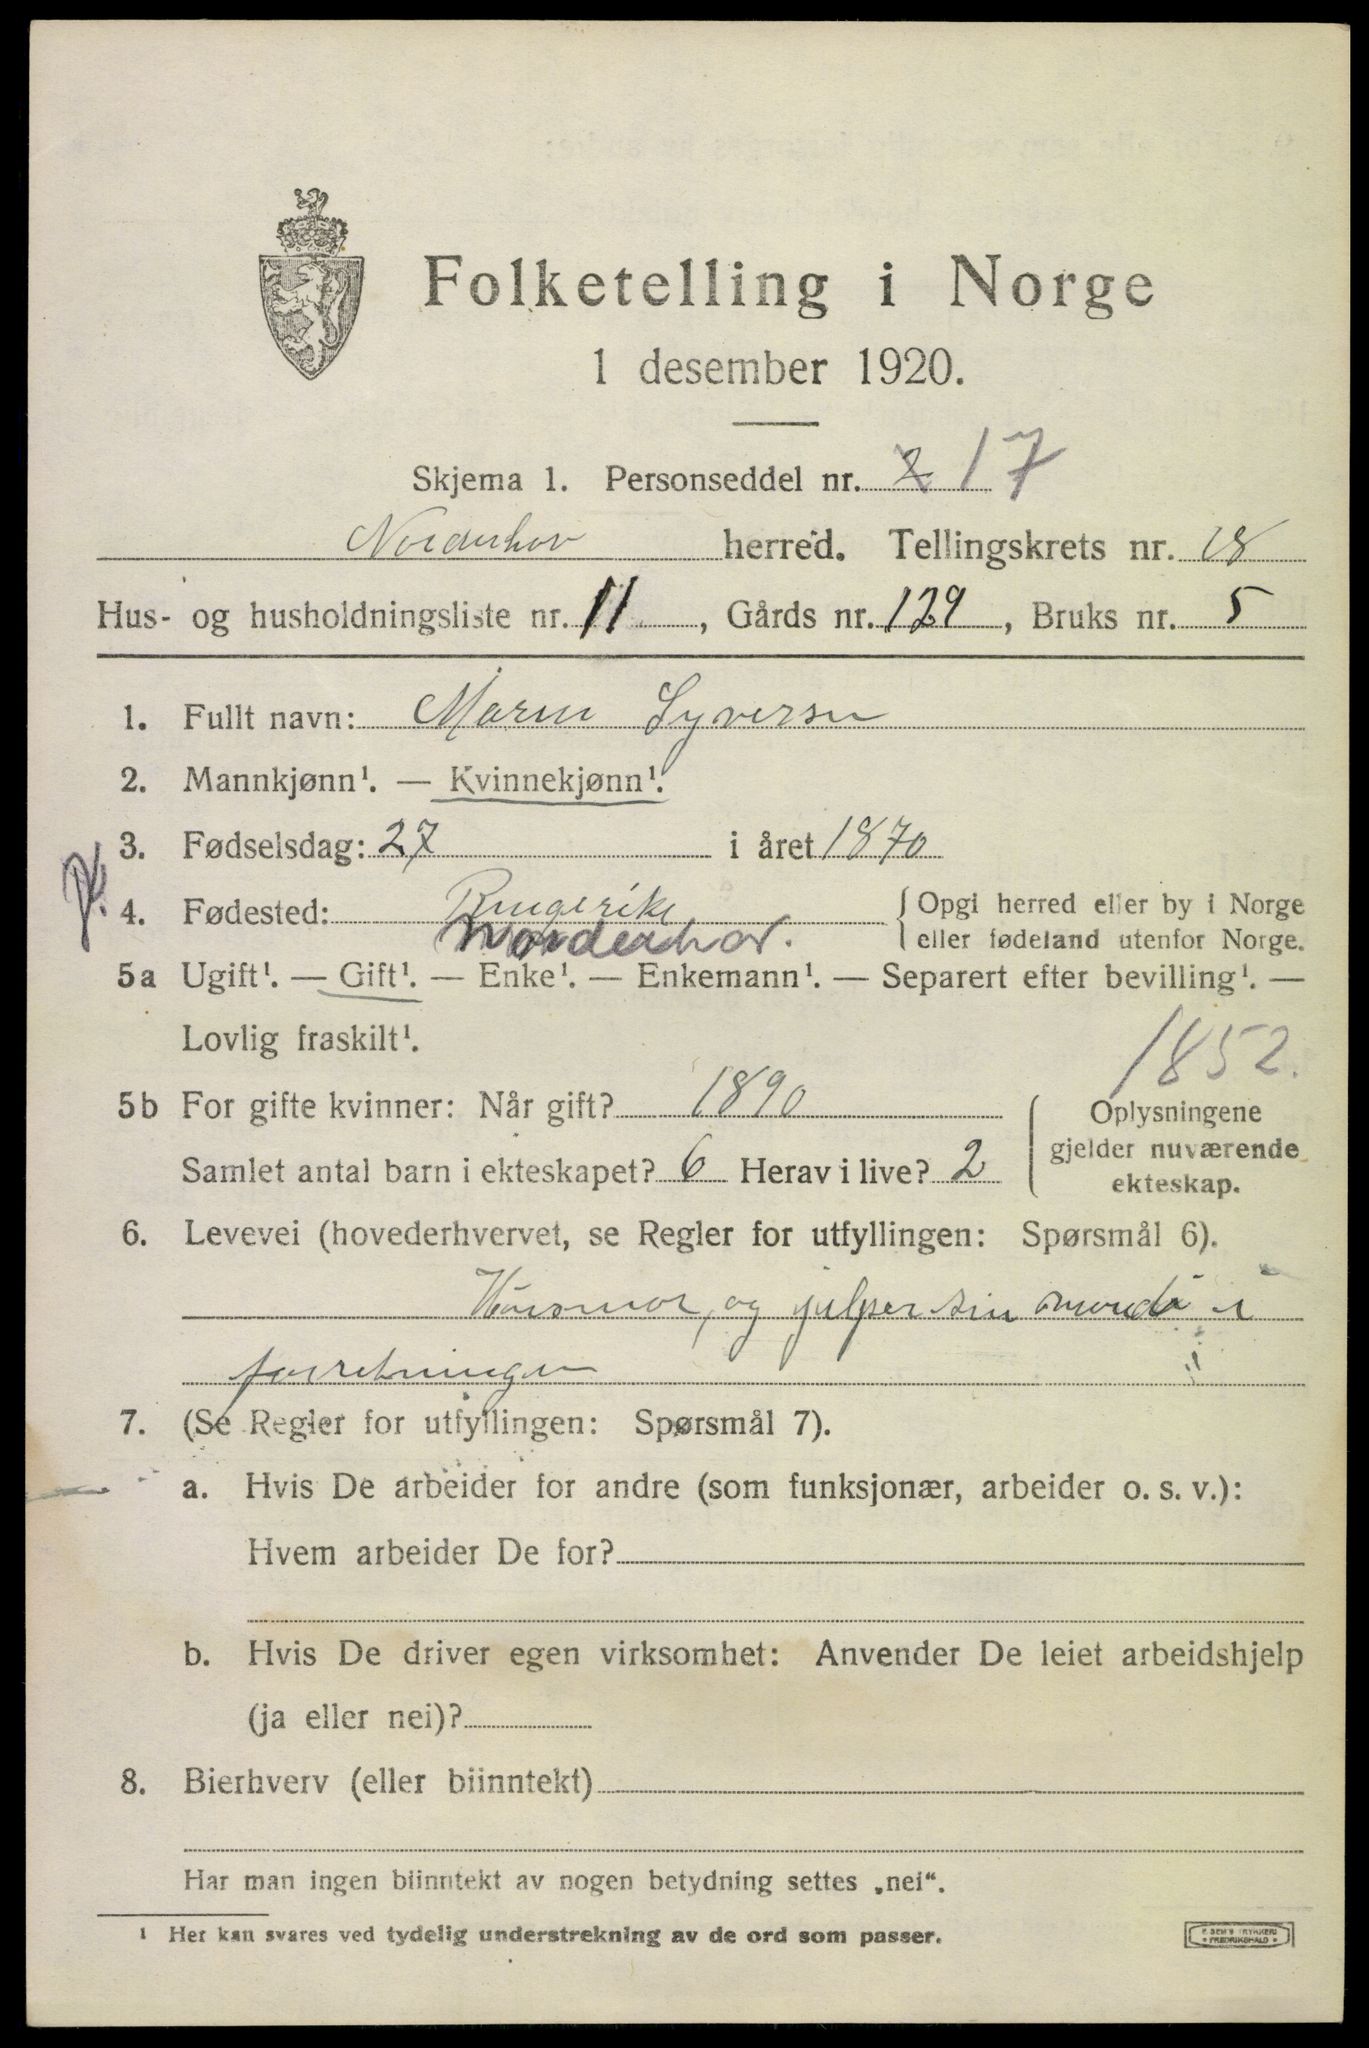 Folketelling i Norge
1 desember 1920.
Skjema 1. Personseddel nr. 2 17
Norderhov herred. Tellingskrets nr. 18
Hus- og husholdningsliste nr. 11, Gårds nr. 129, Bruks nr. 5
1. Fullt navn: Maren Syversen
2. Mannkjønn¹. — Kvinnekjønn¹.
3. Fødselsdag: 27 i året 1870
4. Fødested: Ringerike { Opgi herred eller by i Norge
Norderhov. eller fødeland utenfor Norge.
5a Ugift¹. — Gift¹. — Enke¹. — Enkemann¹. — Separert efter bevilling¹. —
Lovlig fraskilt¹.
1852.
5b For gifte kvinner: Når gift? 1890 Oplysningene
gjelder nuværende
Samlet antal barn i ekteskapet? 6 Herav i live? 2 ekteskap.
6. Levevei (hovederhvervet, se Regler for utfyllingen: Spørsmål 6).
Husmor, og hjelper sin mand i
forretningen
7. (Se Regler for utfyllingen: Spørsmål 7).
a. Hvis De arbeider for andre (som funksjonær, arbeider o. s. v.):
Hvem arbeider De for?
b. Hvis De driver egen virksomhet: Anvender De leiet arbeidshjelp
(ja eller nei)?
8. Bierhverv (eller biinntekt)
Har man ingen biinntekt av nogen betydning settes „nei".
¹ Her kan svares ved tydelig understrekning av de ord som passer.
FREDRIKSHALD